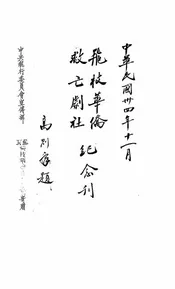 中華民國卅四年十一月
飛枝華僑
救亡劇社
紀念刊
題
中央執行委員會宣傳部